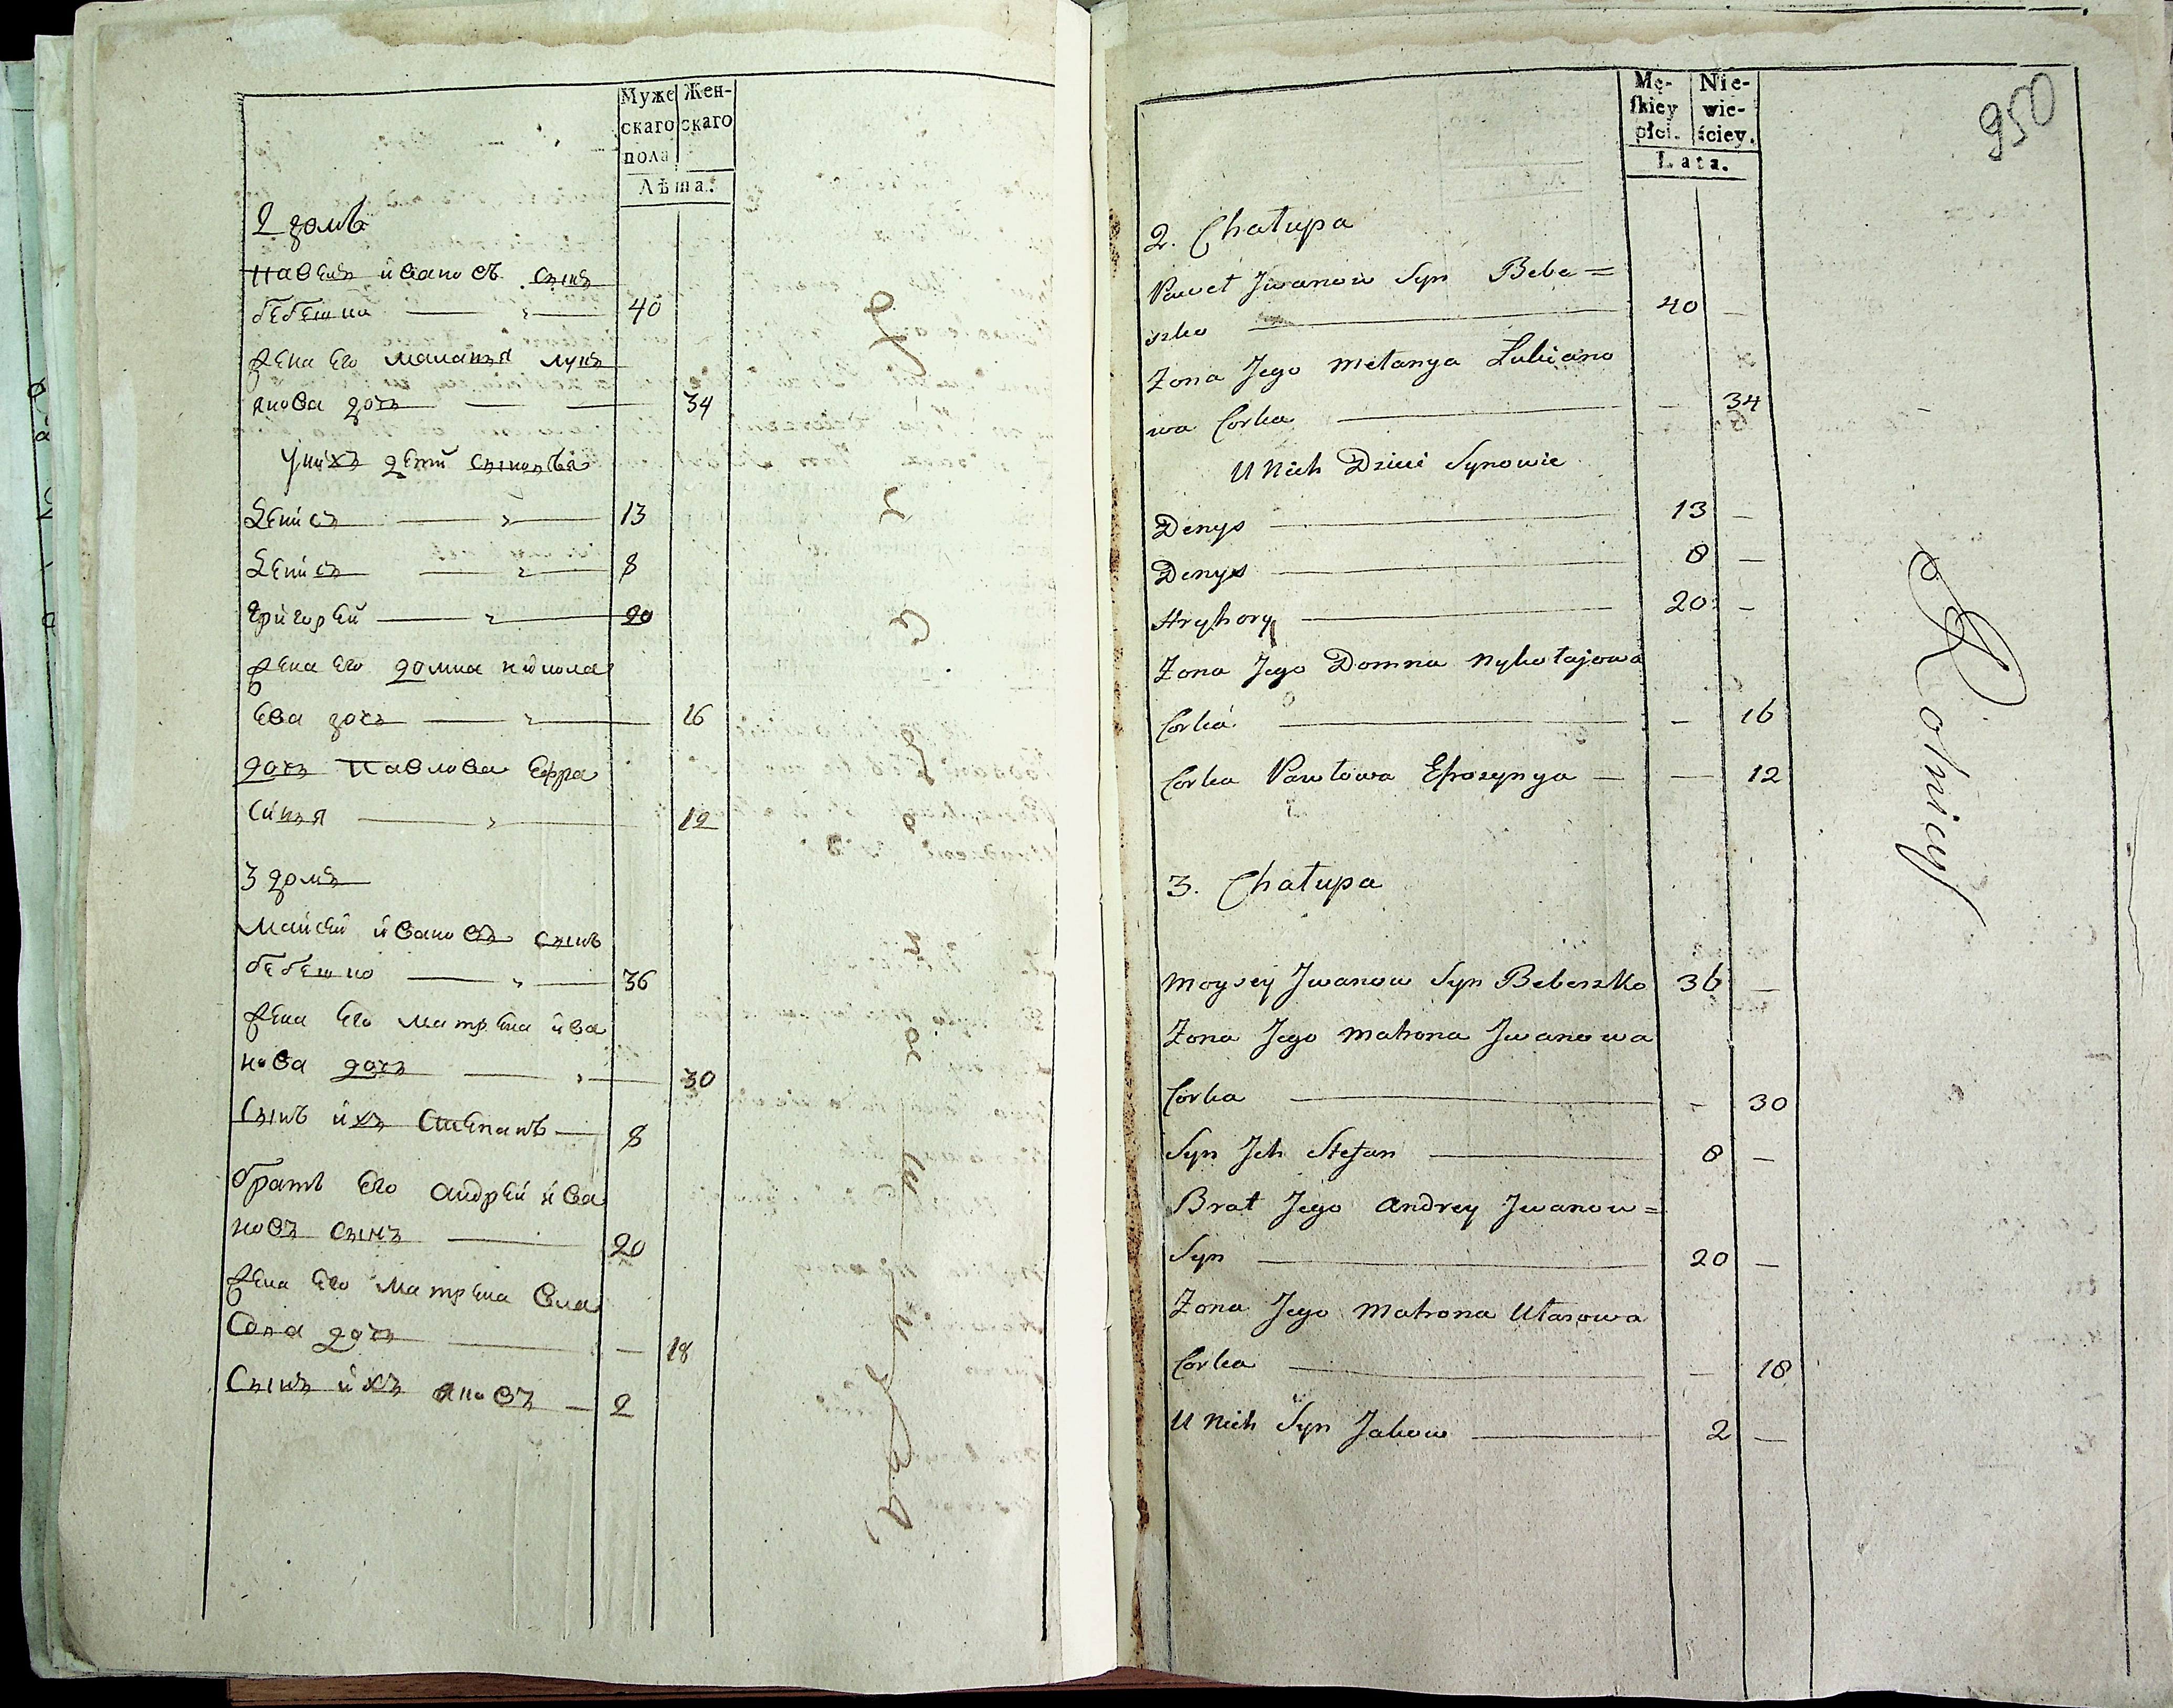 Муже
скаго
пола
Жен-
скаго
Лѣта.
2 домъ
Павелъ ивановъ сынъ
бебешко 40
жена его маланья лукъ
янова дочь 34
у нихъ дети сыновья
Денисъ 13
Денисъ 8
Григорей 20
жена его домна никола
ева дочь 16
дочь Павлова Ефра
синья 12
3 домъ
Мойсей ивановъ сынъ
бебешко 36
жена его матрена ива
нова дочь 30
Сынъ ихъ Степанъ 8
братъ его андрей ива
новъ сынъ 20
жена его матрена Вла
сова дочь 18
Сынъ ихъ яковъ 2
Mę-
skiey
płci.
Nie-
wie-
ściey.
Lata.
950
2. Chałupa
Paweł Jwanow Syn Bebe=
szko 40 —
Żona Jego Melanya Lukiano
wa Corka — 34
U Nich Dzieci Synowie
Denys 13 —
Denys 8 —
Hryhory 20 —
Żona Jego Domna Nykołajowa
Corka — 16
Corka Pawłowa Efrosynya — 12
3. Chałupa
Moysey Jwanow Syn Bebeszko 36 —
Żona Jego Matrona Jwanowa
Corka — 30
Syn Jch Stefan 8 —
Brat Jego Andrey Jwanow=
Syn 20 —
Żona Jego Matrona Ułasowa
Corka — 18
U Nich Syn Jakow 2 —
Rolnicy